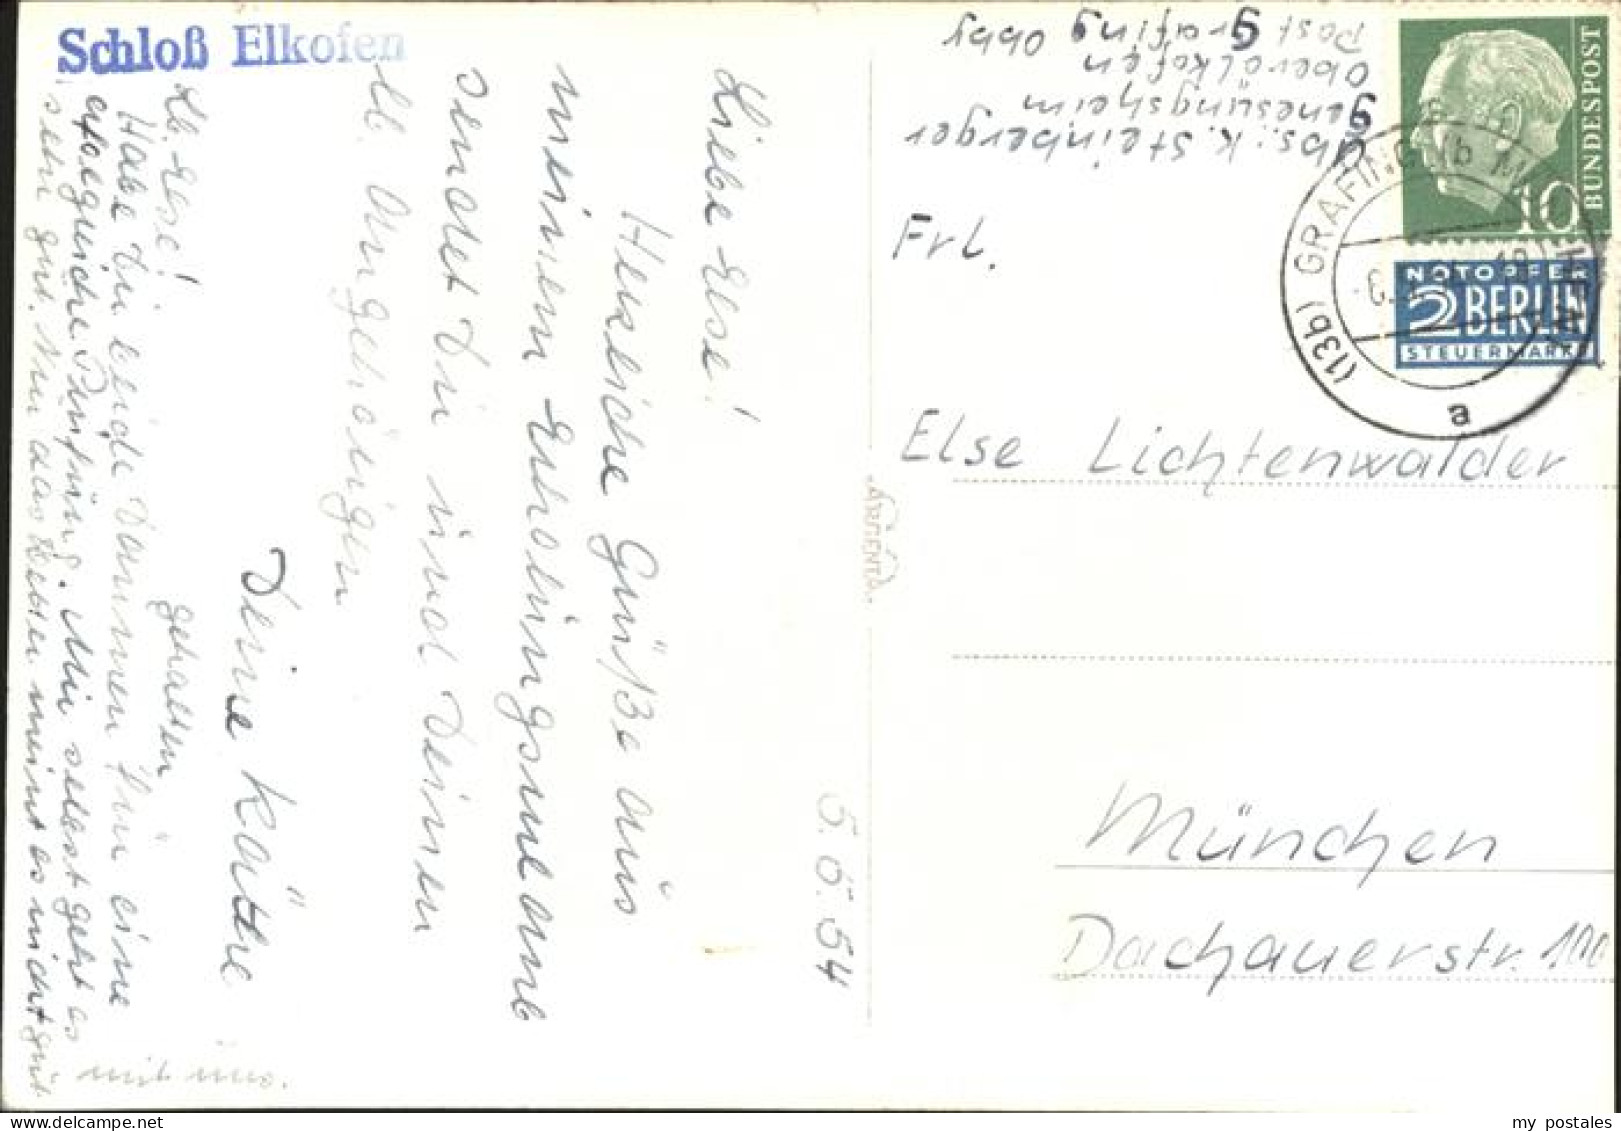 Schloß Elkofen
Liebe Else!
Herzliche Grüße aus
meinem Erholungsurlaub
sendet Dir und Deinen
lb. Angehörigen
Deine Käthe
5.8.54
Lb. Else!
Habe Dir beide Daumen für eine
gehalten
erfolgreiche Prüfung. Mir selbst geht es
sehr gut. Nur das Wetter meint es nicht gut
mit uns.
Abs: K. Steinberger
genesungsheim
Oberelkofen
Post Grafing Obby
Frl.
Else Lichtenwalder
München
Dachauerstr. 100
ARGENTA
BUNDESPOST
10
NOTOPFER
2 BERLIN
STEUERMARKE
(13b) GRAFING (b MÜNCHEN)
a
my postales